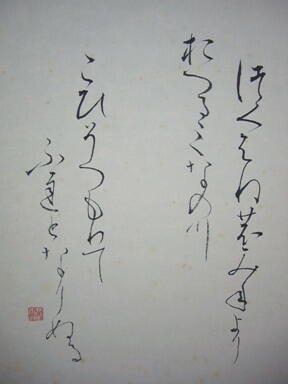 つくばねの峰みねより
おつるみなの川
こひそつもりて
ふちとなりぬる